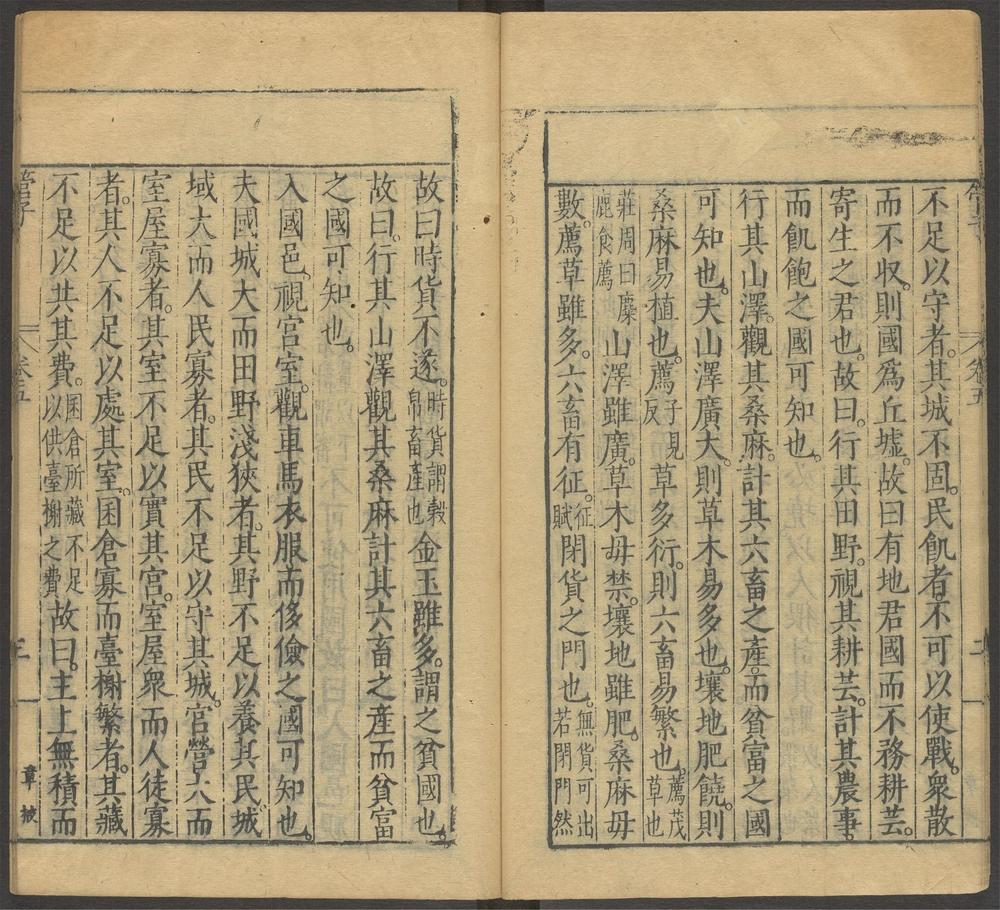 管子 卷五 二
不足以守者。其城不固。民飢者不可以使戰。衆散
而不収。則國爲丘墟。故曰有地君國而不務耕芸。
寄生之君也。故曰。行其田野。視其耕芸。計其農事。
而飢飽之國可知也。
行其山澤。觀其桑麻。計其六畜之產。而貧富之國
可知也。夫山澤廣大。則草木易多也。壤地肥饒。則
桑麻易植也。薦子見反草多衍。則六畜易繁也。薦茂草也
莊周曰麋鹿食薦山澤雖廣。草木毋禁。壤地雖肥。桑麻毋
數。薦草雖多。六畜有征。征賦閉貨之門也。無貨可出若閉門然
故曰時貨不遂。時貨謂穀帛畜產也金玉雖多。謂之貧國也。
故曰。行其山澤觀其桑麻計其六畜之產而貧富
之國可知也。
入國邑。視宮室。觀車馬衣服而侈儉之國可知也。
夫國城大而田野淺狹者。其野不足以養其民。城
域大而人民寡者。其民不足以守其城。宮營大而
室屋寡者。其室不足以實其宮。室屋衆而人徒寡
者。其人不足以處其室。囷倉寡而臺榭繁者。其藏
不足以共其費。囷倉所藏不足以供臺榭之費故曰。主上無積而
管子 卷五 三 章掖